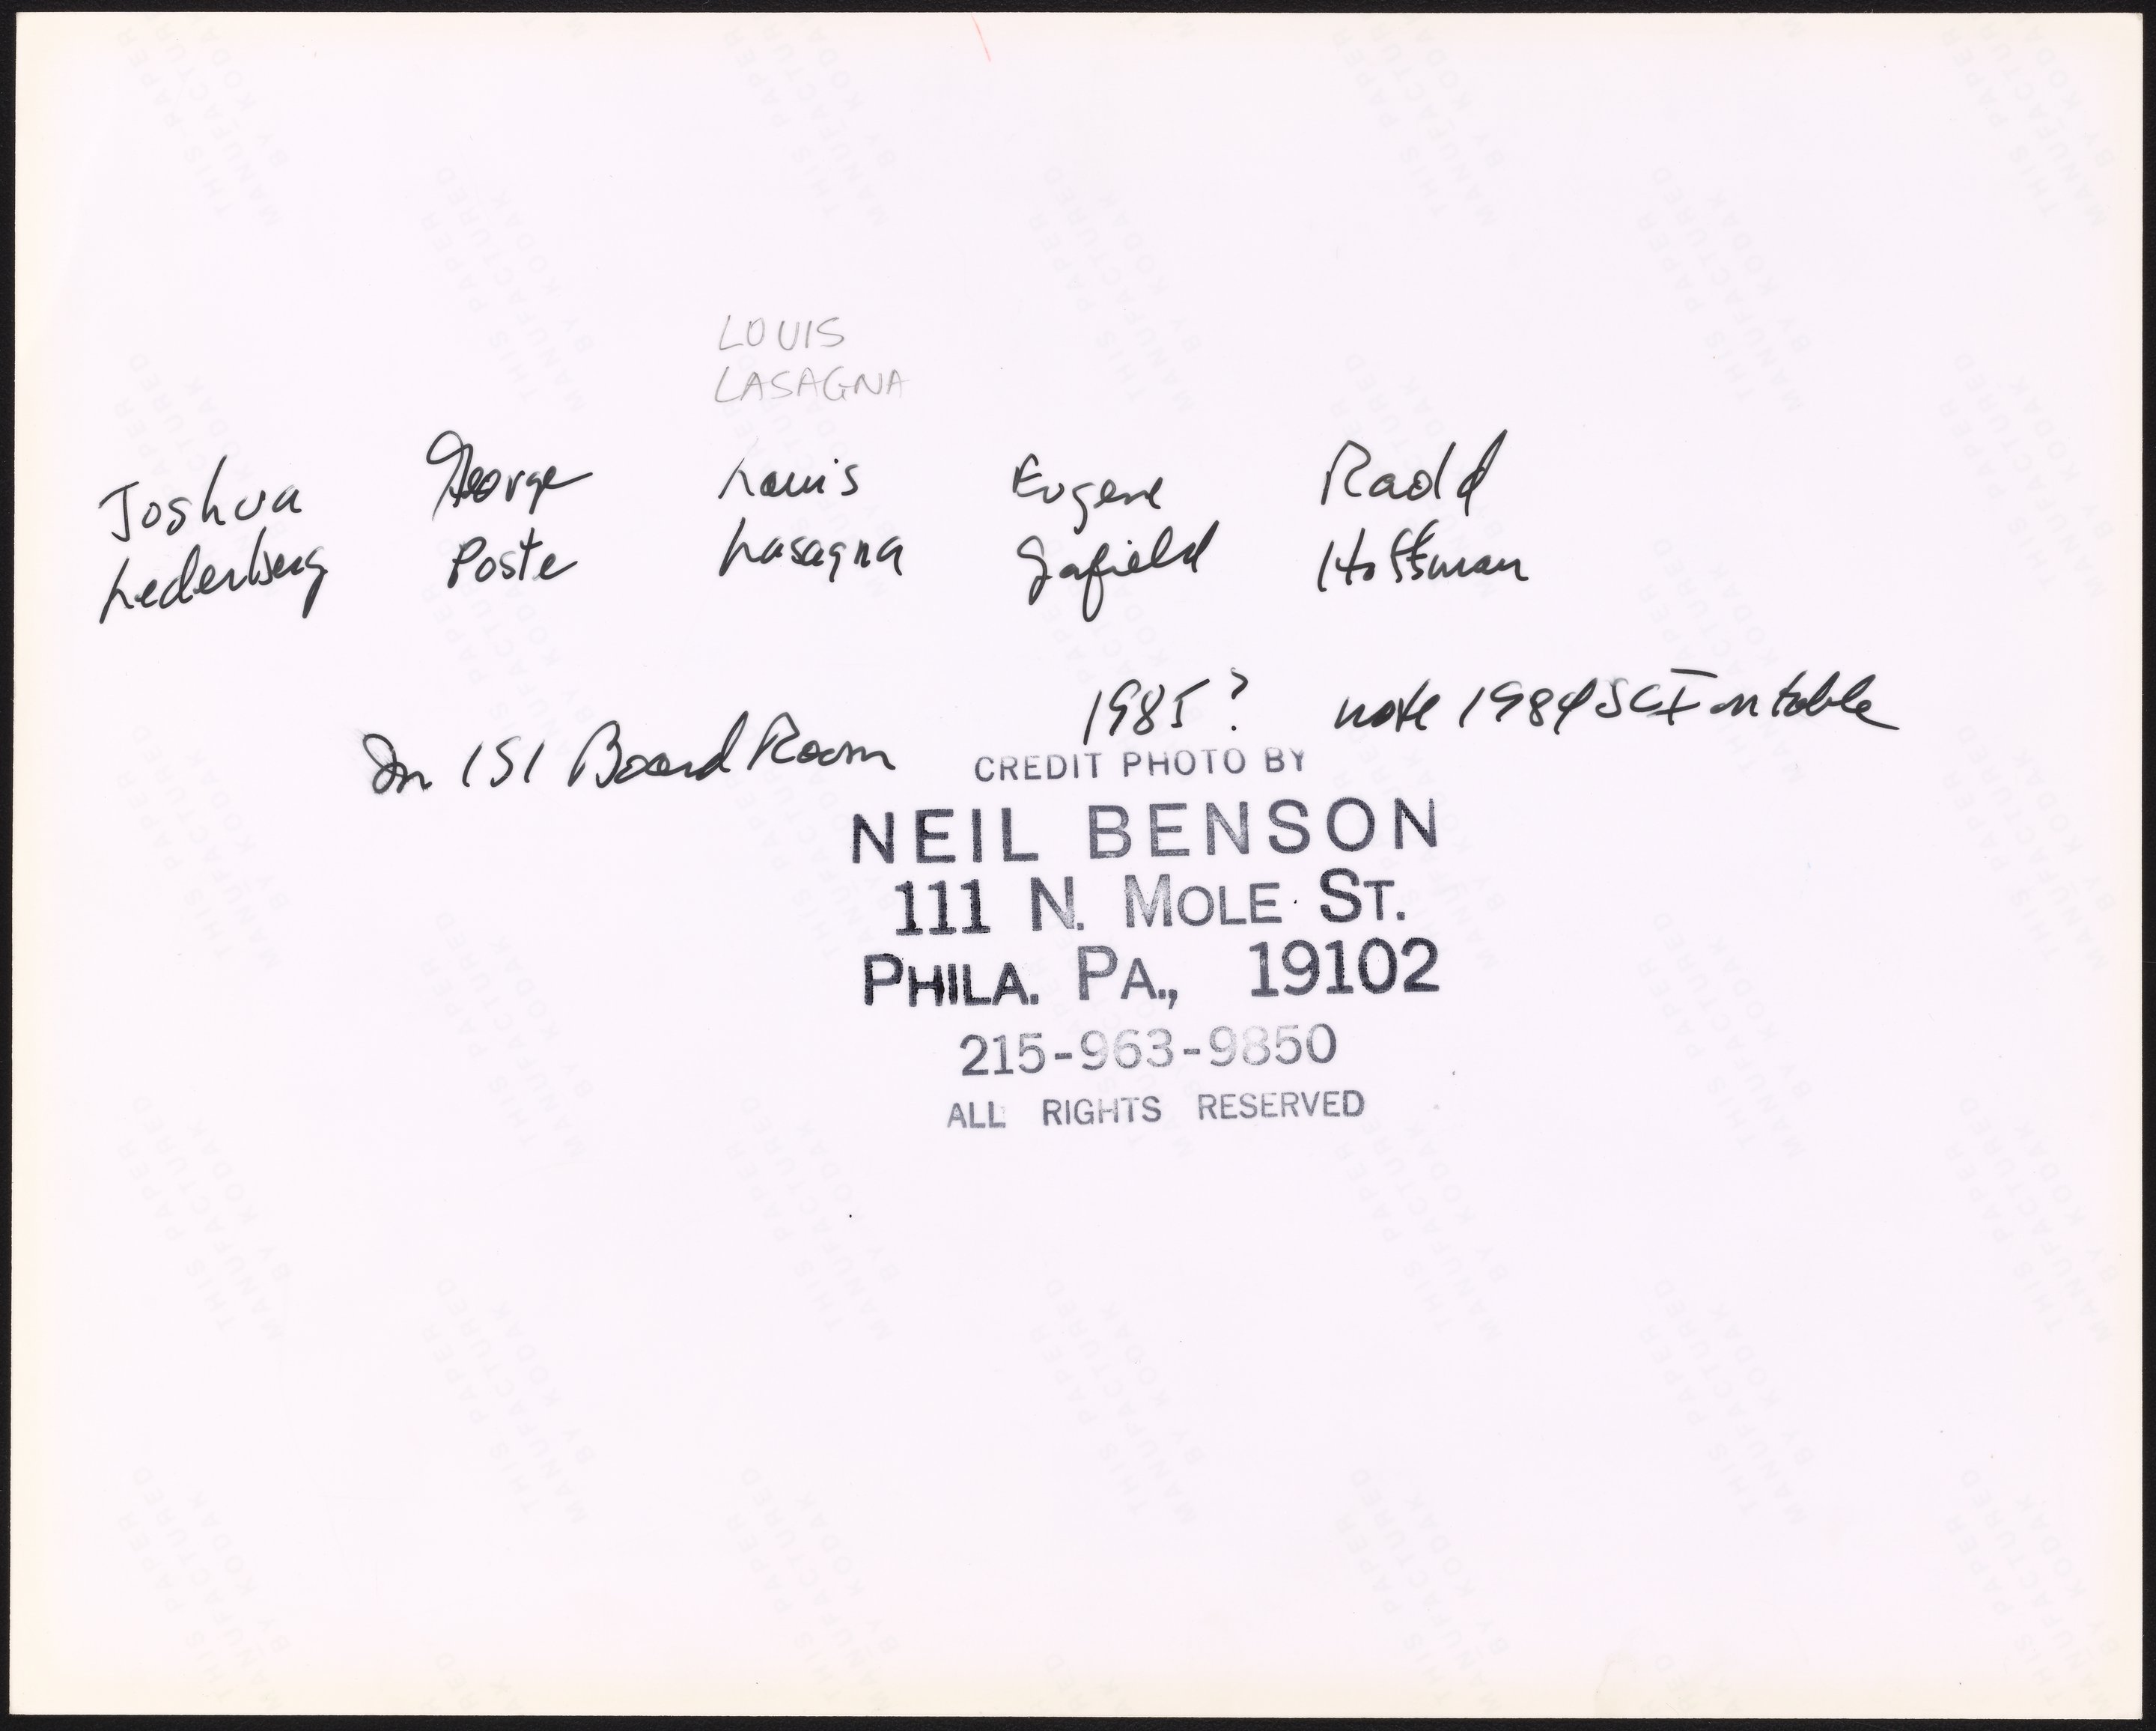 LOUIS
LASAGNA
Joshua George Louis Eugene Roald
Lederberg Poste Lasagna Garfield Hoffman
In ISI Board Room 1985? note 1984 SCI on table
CREDIT PHOTO BY
NEIL BENSON
111 N. MOLE ST.
PHILA. PA., 19102
215-963-9850
ALL RIGHTS RESERVED
THIS PAPER
MANUFACTURED
BY KODAK